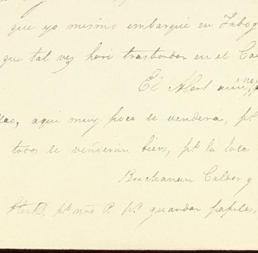 que yo mismo embarqué en Tabog
que tal vez hará trasbordar en el Ca
El Albert aún
aquí muy poco se vendera, pr
todos se venderan bien, pr la loca
Buchanan Calder y
pr guardar papeles,